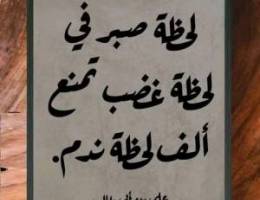 لحظة صبر في
لحظة غضب تمنع
ألف لحظة ندم.